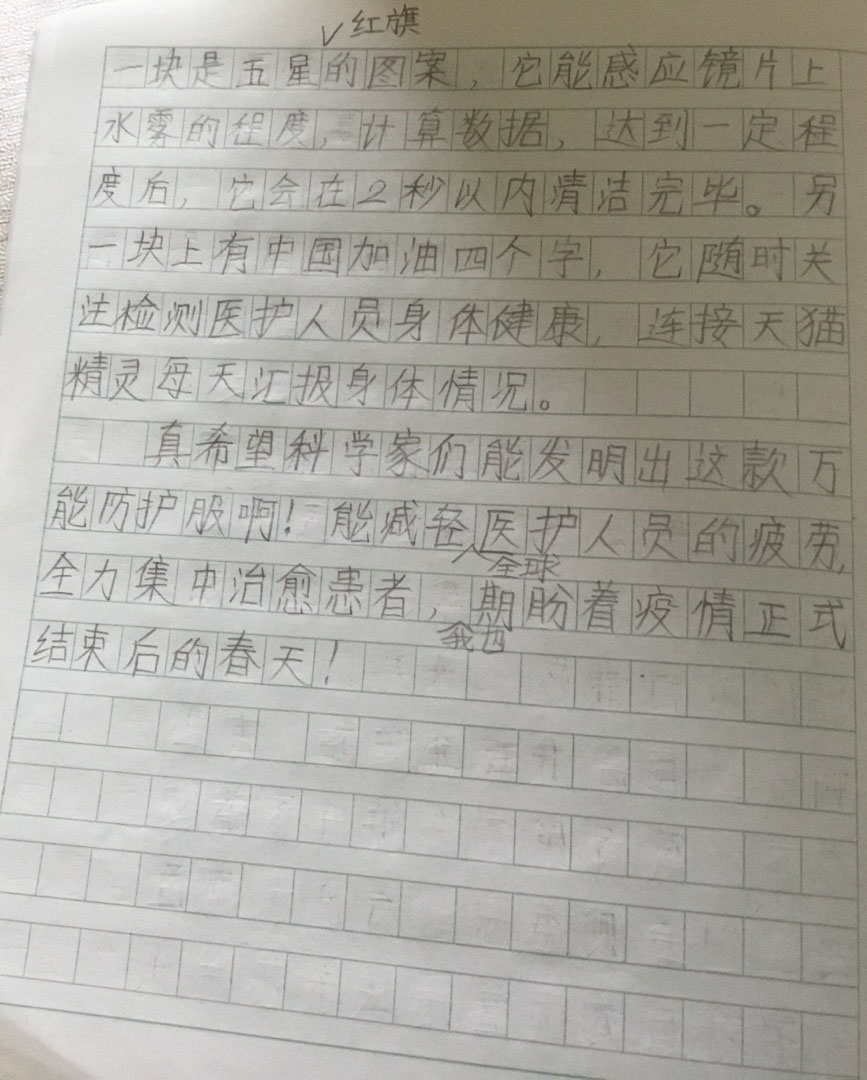 红旗
一块是五星的图案，它能感应镜片上
水雾的程度，计算数据，达到一定程
度后，它会在2秒以内清洁完毕。另
一块上有中国加油四个字，它随时关
注检测医护人员身体健康，连接天猫
精灵每天汇报身体情况。
真希望科学家们能发明出这款万
能防护服啊！能减轻医护人员的疲劳，
全球
全力集中治愈患者，期盼着疫情正式
我也
结束后的春天！